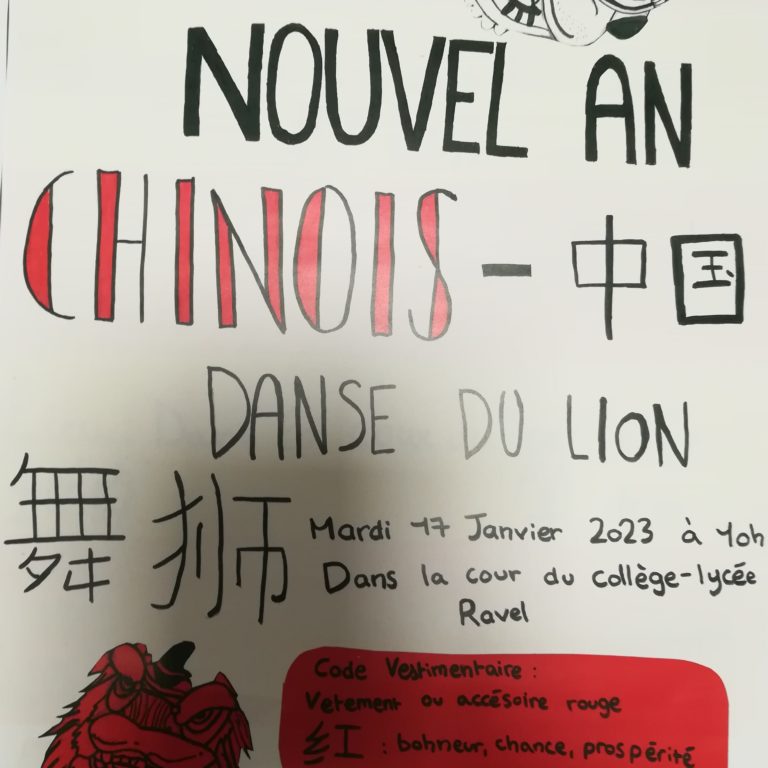 NOUVEL AN
CHINOIS - 中国
DANSE DU LION
舞狮
Mardi 17 Janvier 2023 à 10h
Dans la cour du collège-lycée
Ravel
Code Vestimentaire :
Vetement ou accésoire rouge
红 : bohneur, chance, prospérité